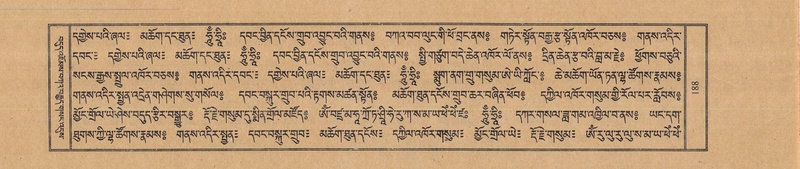 དགྱེས་པའི་ཞལ༔ མཆོག་དང་ཐུན༔ ཧཱུྃ་ཧྲཱིཿ དབང་ཕྱིན་དངོས་གྲུབ་འབྱུང་བའི་གནས༔ བཀའ་བབ་ལུང་གི་ཕོ་བྲང་ནས༔ གཏེར་སྟོན་བརྒྱ་རྩ་སྟོན་འཁོར་བཅས༔ གནས་འདིར་
དབང༔ དགྱེས་པའི་ཞལ༔ མཆོག་དང་ཐུན༔ ཧཱུྃ་ཧྲཱིཿ དབང་ཕྱིན་དངོས་གྲུབ་འབྱུང་བའི་གནས༔ སྤྱི་གཙུག་བདེ་ཆེན་འཁོར་ལོ་ནས༔ དྲིན་ཆེན་རྩ་བའི་བླ་མ་རྗེ༔ ཕྱོགས་བཅུའི་
སངས་རྒྱས་སྤྲུལ་འཁོར་བཅས༔ གནས་འདིར་དབང༔ དགྱེས་པའི་ཞལ༔ མཆོག་དང་ཐུན༔ ཧཱུྃ་ཧྲཱིཿ སྨུག་ནག་གྲུ་གསུམ་ཨེ་ཡི་ཀློང༔ ཆེ་མཆོག་ཡོན་ཏན་ལྷ་ཚོགས་རྣམས༔
གནས་འདིར་སྤྱན་འདྲེན་གཤེགས་སུ་གསོལ༔ དབང་བསྐུར་གྲུབ་པའི་རྟགས་མཚན་སྟོན༔ མཆོག་ཐུན་དངོས་གྲུབ་ཆར་བཞིན་ཕོབ༔ དཀྱིལ་འཁོར་གསུམ་གྱི་རོལ་པར་རློབས༔
མྱོང་གྲོལ་ཡེ་ཤེས་བདུད་རྩིར་བསྒྱུར༔ རྡོ་རྗེ་གསུམ་དུ་སྨིན་གྲོལ་མཛོད༔ ཨོཾ་བཛྲ་མ་ཧཱ་ཀྲོ་ཏ་ཤྲཱི་ཧེ་རུ་ཀ་ས་མ་ཡ་ཕེཾ་ཕེཾ་ཛཿ ཧཱུྃ་ཧྲཱིཿ དཀར་གསལ་ཟླ་གམ་འཁྱིལ་བ་ནས༔ ཡང་དག་
ཐུགས་ཀྱི་ལྷ་ཚོགས་རྣམས༔ གནས་འདིར་སྤྱན༔ དབང་བསྐུར་གྲུབ༔ མཆོག་ཐུན་དངོས༔ དཀྱིལ་འཁོར་གསུམ༔ མྱོང་གྲོལ་ཡེ༔ རྡོ་རྗེ་གསུམ༔ ཨོཾ་རུ་ལུ་རུ་ལུ་ས་མ་ཡ་ཕེཾ་ཕེཾ་
881